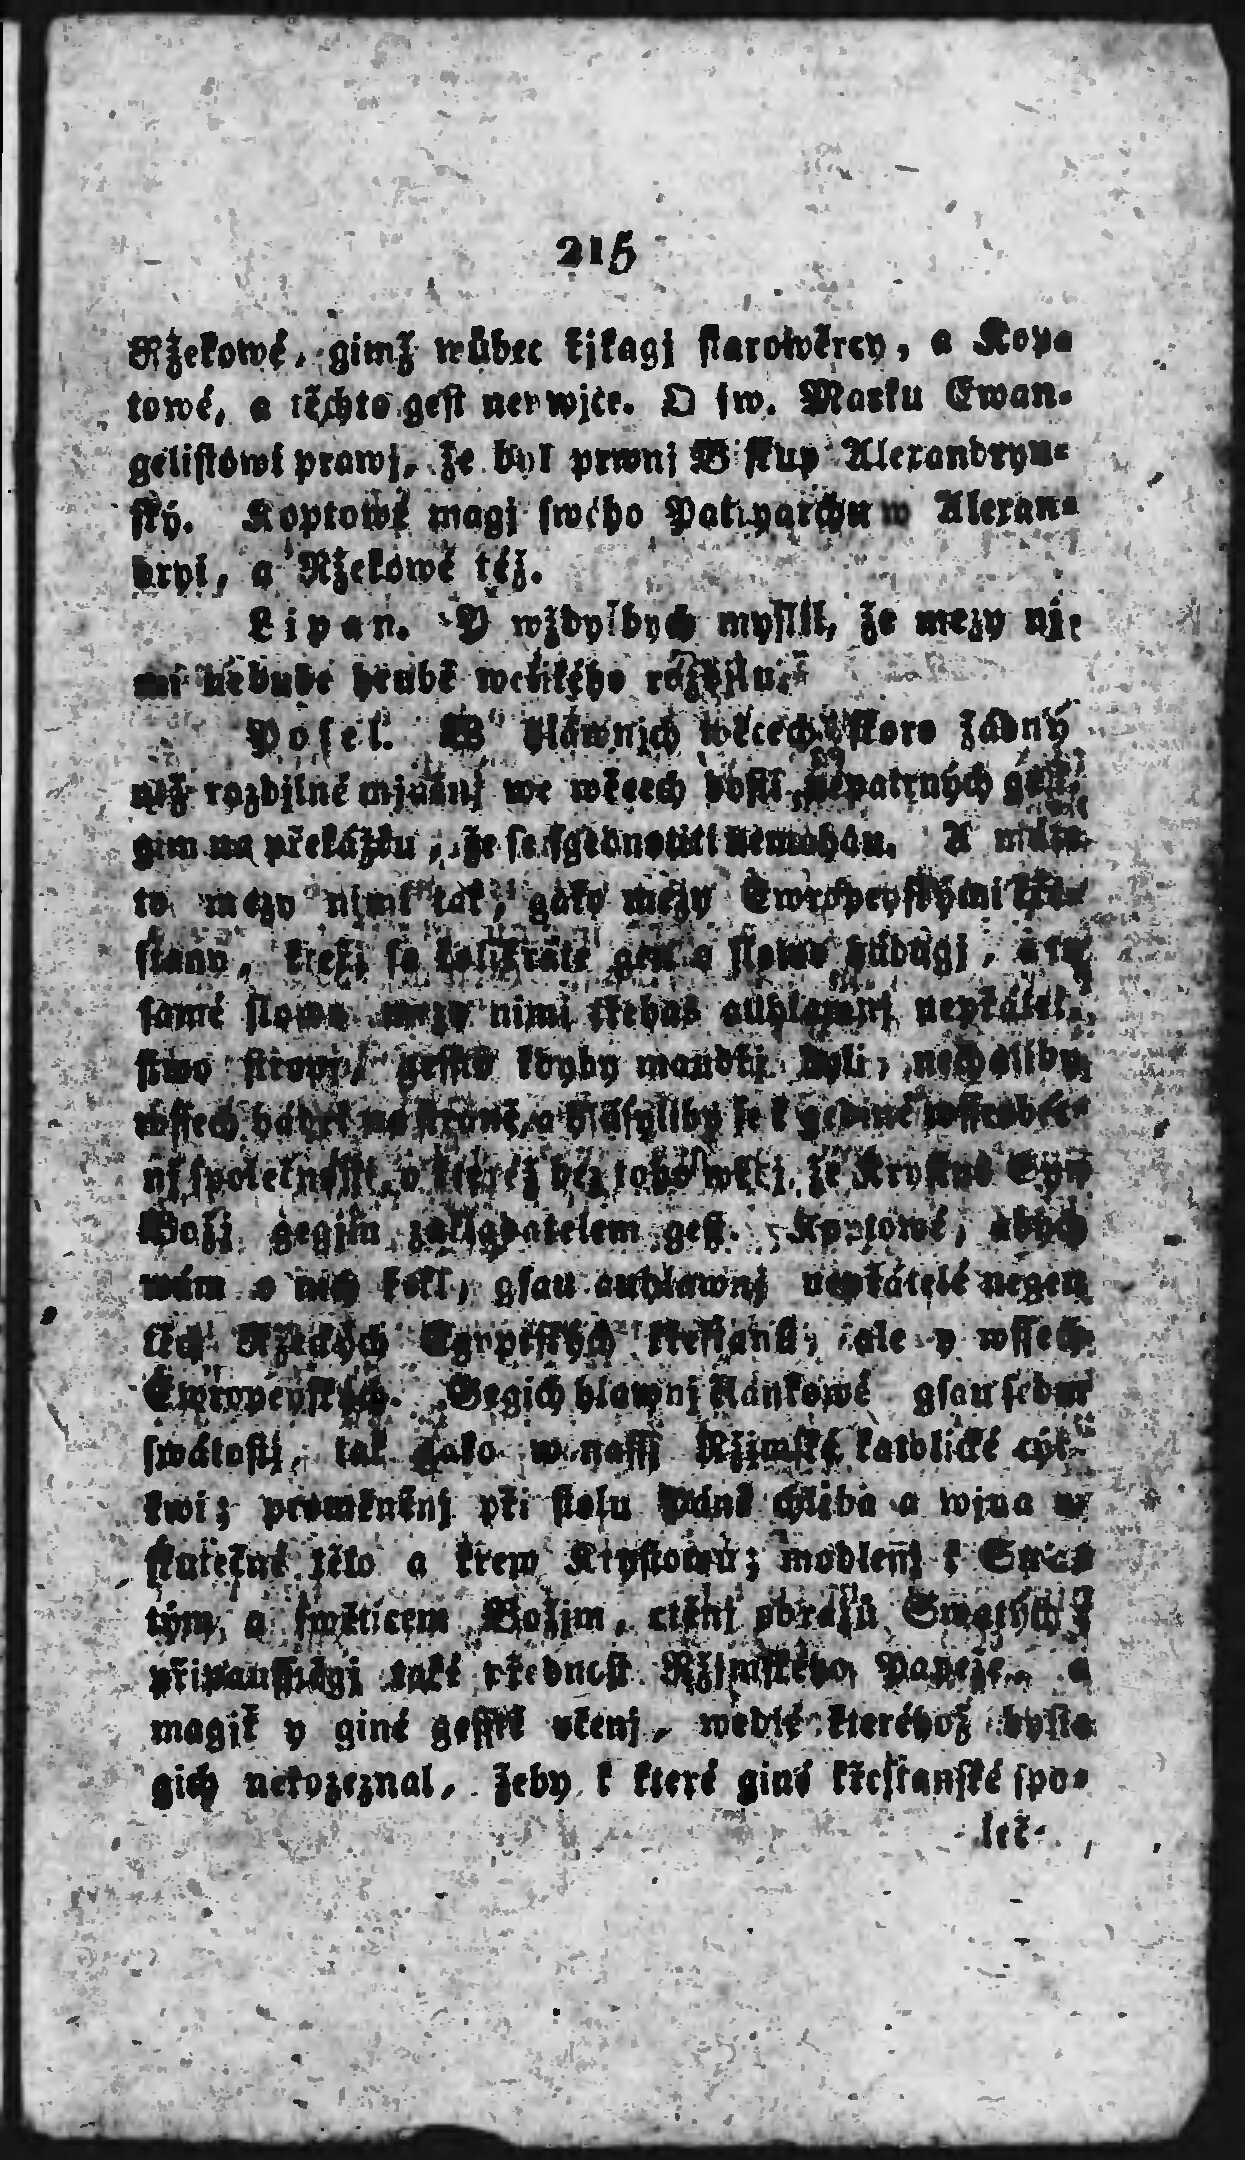 215
Ržekowé, gimž wůbec řjkagj starowěrcy, a Kop-
towé, a těchto gest neywjce. O sw. Marku Ewan-
gelistowi prawj, že byl prwnj Biskup Alexandryn-
ský. Koptowé magj swého Patryarchu w Alexan-
dryi, a Ržekowé též.
Lipan. Y wždyť bych myslil, že mezy nj-
mi nebude hrubě welikého rozdjlu.
Posel. W hlawnjch wěcech skoro žádný
než rozdjlné mjněnj we wěcech dosti nepatrných gest
gim na překážku, že se sgednotiti nemohau. A
to mezy nimi tak, gako mezy Ewropeyskými kře-
stany, kteřj se kolikráte gen o slowo hádagj, a to
samé slowo mezy nimi třebas auhlawnj nepřátel-
stwo strogj, gessto kdyby maudřj byli, nechaliby
wssech hádek na straně, a hlásyliby se k gediné wsseobec-
nj společnosti, o kteréž bez toho wěřj, že Krystus Syn
Božj gegjm zakladatelem gest. Koptowé, abych
wám o nich řekl, gsau auhlawnj nepřátelé negen
těch Ržeckých Egyptských křesťanů, ale y wssech
Ewropeyských. Gegich hlawnj článkowé gsau sedm
swátostj, tak gako w nassj Ržjmské katolické cýr-
kwi; proměněnj při stolu Páně chleba a wjna w
skutečné tělo a krew Krystowu; modlenj k Swa-
tým a swěticem Božjm, ctěnj obrazů Swatých;
připausstěgj také přednost Ržjmského Papeže, a
magjť y giné gesstě včenj, wedlé kteréhož byste
gich nerozeznal, žeby k které giné křesťanské spo-
leč-